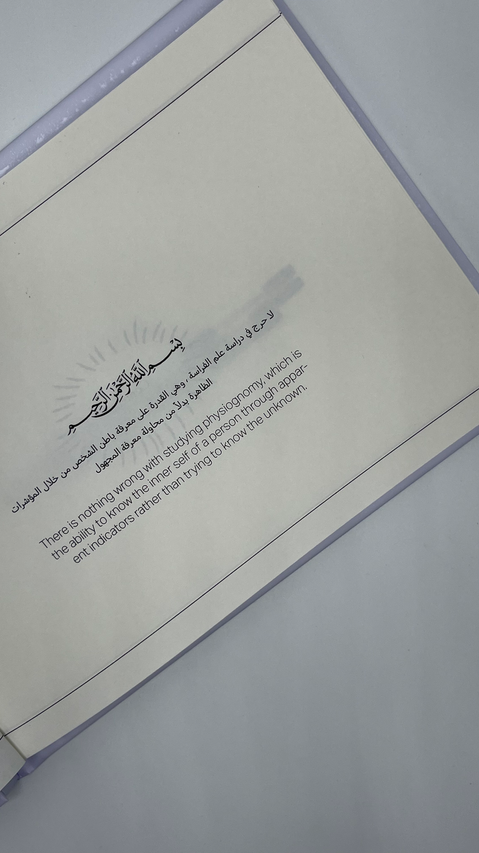 بسم الله الرحمن الرحيم
لا حرج في دراسة علم الفراسة ، وهي القدرة على معرفة باطن الشخص من خلال المؤشرات
الظاهرة بدلاً من محاولة معرفة المجهول
There is nothing wrong with studying physiognomy, which is
the ability to know the inner self of a person through appar-
ent indicators rather than trying to know the unknown.